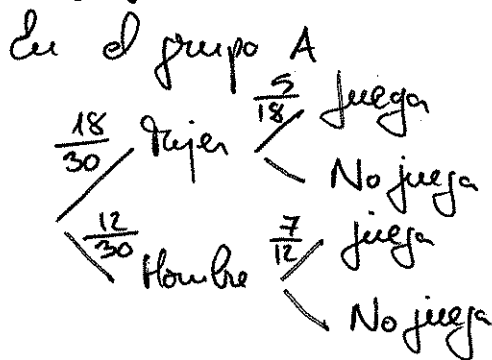 En el grupo A
18/30 Mujer 5/18 juega
No juega
12/30 Hombre 7/12 juega
No juega